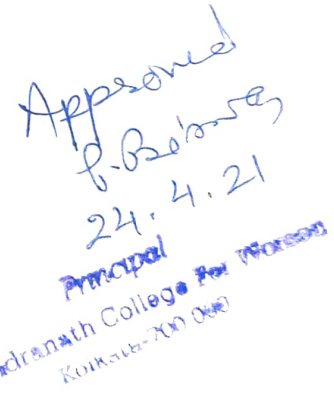 Approved
P. Biswas
24.4.21
Principal
dranath College For Women
Kolkata-700 060